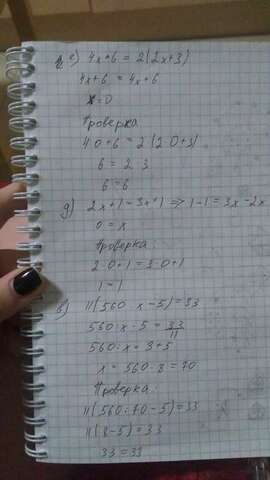 е) 4x+6 = 2(2x+3)
4x+6 = 4x+6
x=0
Проверка
4·0+6=2(2·0+3)
6 = 2·3
6=6
д) 2x+1=3x+1 => 1-1=3x-2x
0 = x
Проверка:
2·0+1=3·0+1
1=1
в) 11(560 : x-5)=33
560:x-5 = 33/11
560:x = 3+5
x = 560:8=70
Проверка:
11(560:70-5)=33
11(8-5)=33
33=33